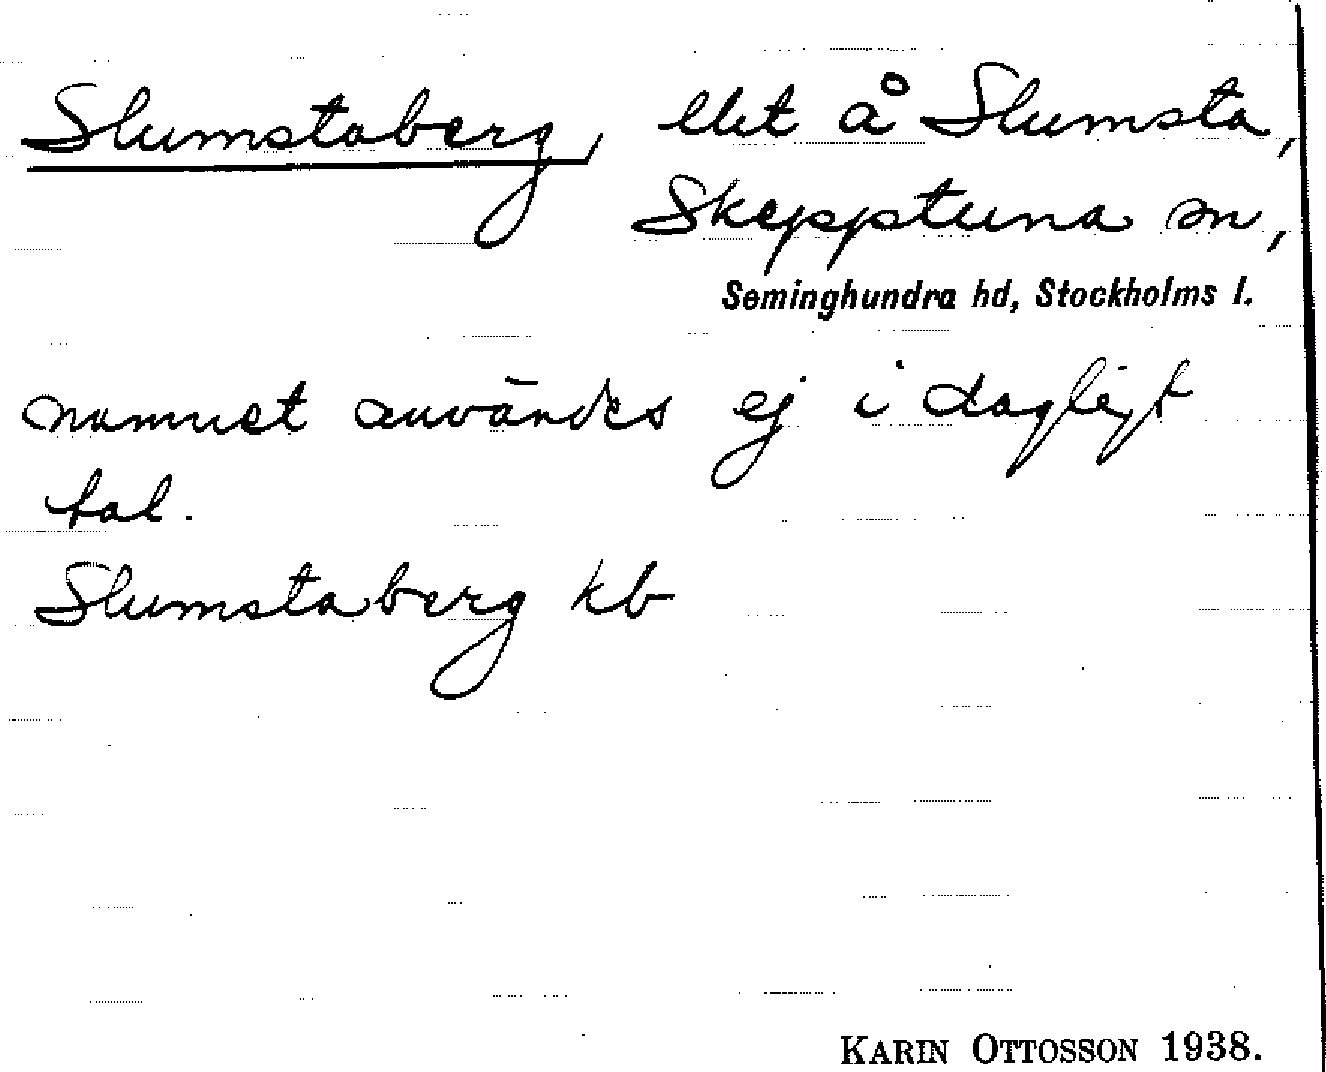 Slumstaberg, lht å Slumsta,
Skepptuna sn,
Seminghundra hd, Stockholms l.
namnet användes ej i dagligt
tal.
Slumstaberg kb
KARIN OTTOSSON 1938.